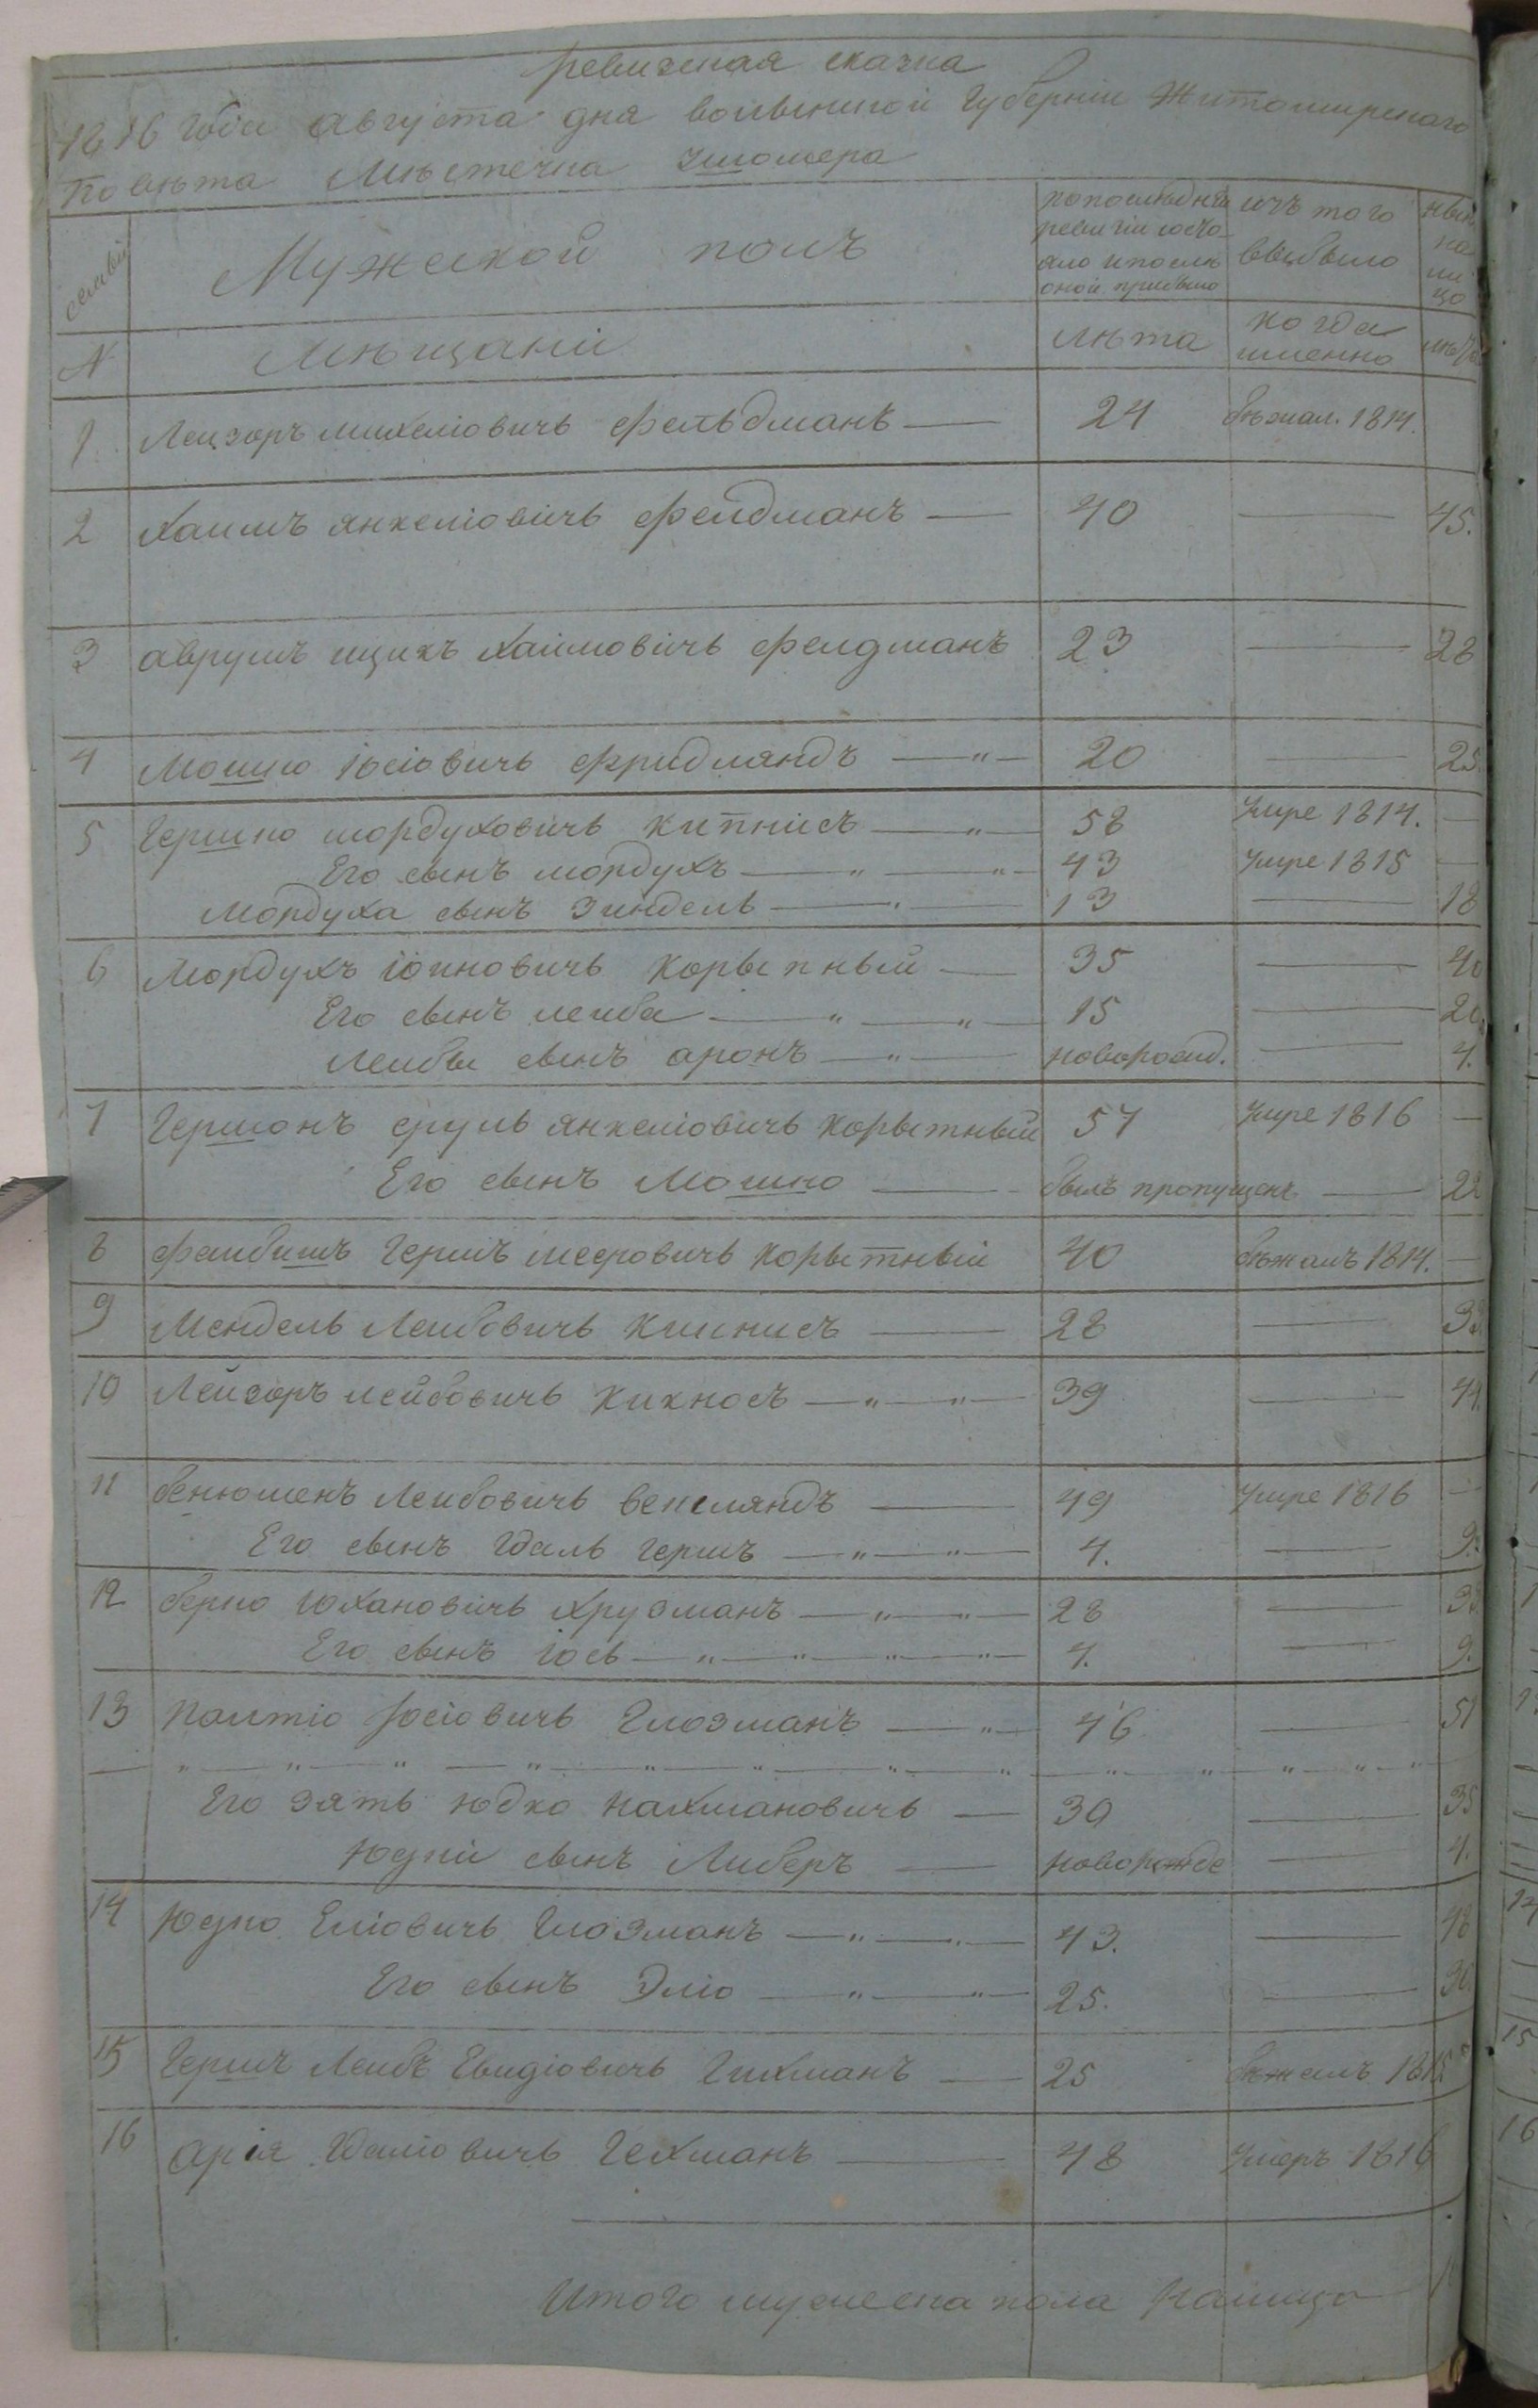 ревизская сказка
1816 года августа дня волынской Губернiи Житомирскаго
Повѣта Мѣстечка
семьи
Мужеской полъ
по последней ревизiи состояло и после оной прибыло
изъ того выбыло
нынѣ на лицо
N
Мѣщанiи
лѣта
когда именно
лѣта
1 Леизоръ михелiовичъ фельдманъ — 24 бѣжал. 1814.
2 Хаимъ янкелiовичъ фелдманъ — 40 — 45.
3 аврумъ ицикъ Хаимовичъ фелдманъ 23 — 28
4 Мошко Iосiовичъ фридляндъ — " — 20 — 25.
5 Гершко мордуховичъ кипнисъ — " — 58 Умре 1814. —
Его сынъ мордухъ — " — " — 43 Умре 1815 —
Мордуха сынъ Зиндель — " — 13 — 18
6 Мордухъ Iоиновичъ Корытный — 35 — 40
Его сынъ леиба — " — " — 15 — 20.
Леибы сынъ аронъ — " — новорожд. — 4.
7 Гершонъ сруль янкелiовичъ корытный 57 Умре 1816 —
Его сынъ Мошко — былъ пропущенъ — 22
8 фаибишъ Гершъ мееровичъ корытный 40 бѣжалъ 1814. —
9 Мендель Леибовичъ — 28 — 33
10 Лейзоръ лейбовичъ — " — " — 39 — 44.
11 бенюменъ Леибовичъ — 49 Умре 1816 —
Его сынъ Гдаль гершъ — " — " — 4. — 9.
12 берко Iохановичъ Хрузманъ — " — " — 28 — 33
Его сынъ Iось — " — " — " — " — 4. — 9.
13 Палтiо Iосiовичъ Глозманъ — " — 46 — 51
Его зять юдко нахмановичъ — 30 — 35
Юдки сынъ Либеръ — новорожде — 4.
14 Юдко Елiовичъ Глозманъ — " — " — 43. — 48
Его сынъ Элiо — " — " — 25. — 30
15 Гершъ Леибъ Гихманъ — 25 бѣжалъ 1815
16 Арiя Гдалiовичъ Гехманъ — 48 Умеръ 1816
Итого мужеска пола налицо